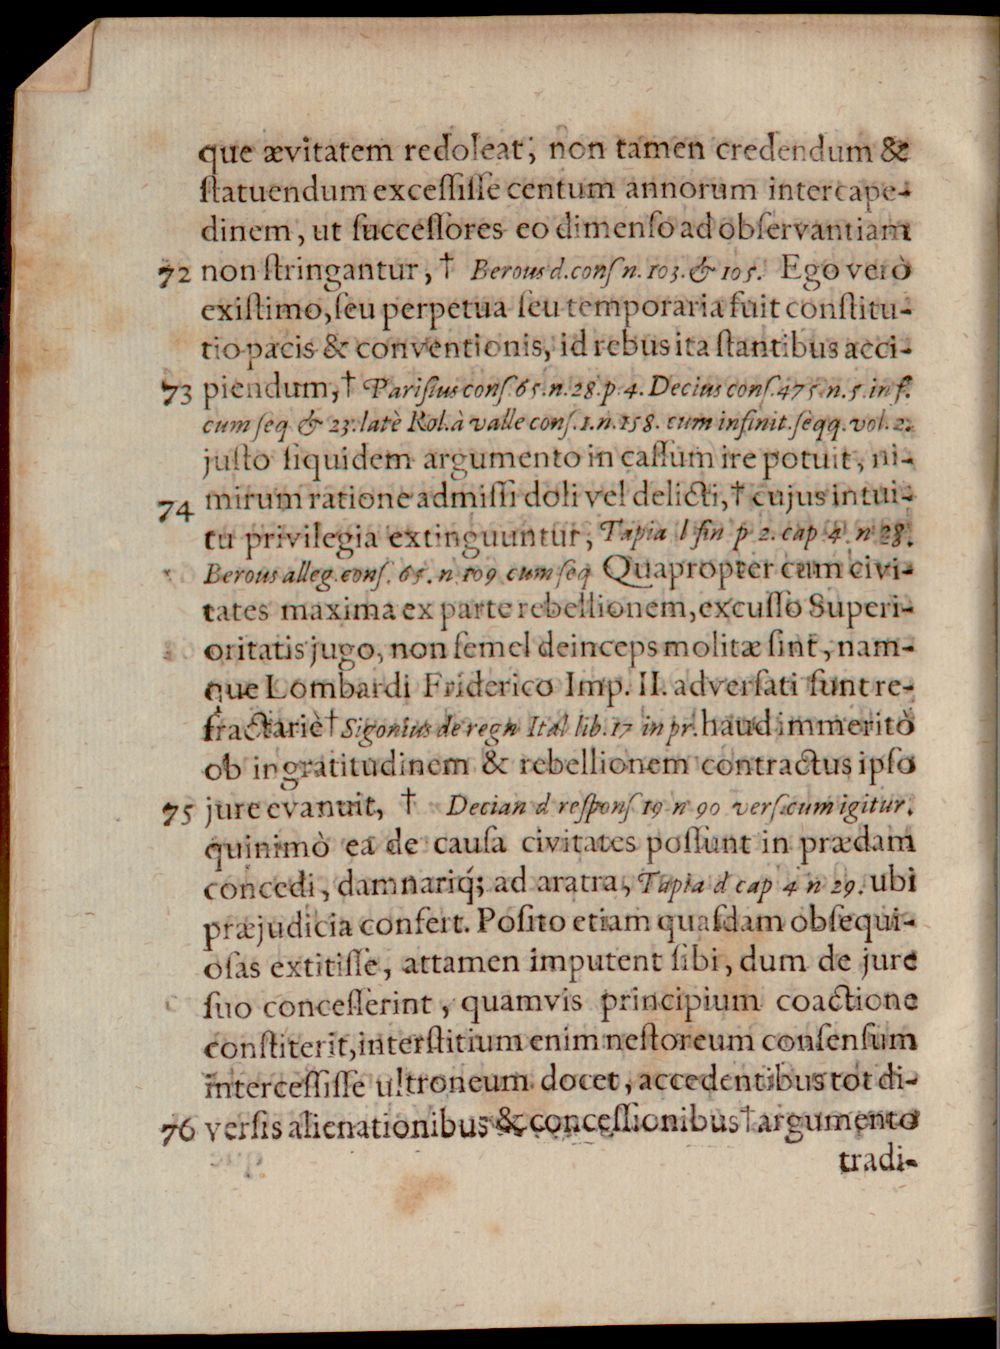 que ævitatem redoleat; non tamen credendum &
ſtatuendum exceſſiſſe centum annorum intercape-
dinem, ut ſucceſſores eo dimenſo ad obſervantiam
72 non ſtringantur, † Berous d. conſ n. 103. & 105. Ego verò
exiſtimo, ſeu perpetua ſeu temporaria fuit conſtitu-
tio pacis & conventionis, id rebus ita ſtantibus acci-
73 piendum, † Pariſius conſ. 65. n. 28. p. 4. Decius conſ. 475. n. 5. in f.
cum ſeq & 23. latè Rol. à valle conſ. 1. n. 158. cum infinit. ſeqq. vol. 2.
juſto ſiquidem argumento in caſſum ire potuit, ni-
74 mirum ratione admiſſi doli vel delicti, † cujus intui-
tu privilegia extinguuntur, Tapia l fin p 2. cap 4. n 28.
Berous alleg. conſ. 65. n. 109 cum ſeq Quapropter cum civi-
tates maxima ex parte rebellionem, excuſſo Superi-
oritatis jugo, non ſemel deinceps molitæ ſint, nam-
que Lombardi Friderico Imp. II. adverſati ſunt re-
fractariè † Sigonius de regn Ital lib. 17 in pr. haud immeritò
ob ingratitudinem & rebellionem contractus ipſo
75 jure evanuit, † Decian d reſponſ 19 n 90 verſ. cum igitur.
quinimò ea de cauſa civitates poſſunt in prædam
concedi, damnariq́; ad aratra, Tapia d cap 4 n 29. ubi
præjudicia confert. Poſito etiam quaſdam obſequi-
oſas extitiſſe, attamen imputent ſibi, dum de jure
ſuo conceſſerint, quamvis principium coactione
conſtiterit, interſtitium enim neſtoreum conſenſum
interceſſiſſe ultroneum docet, accedentibus tot di-
76 verſis alienationibus & conceſſionibus † argumento
tradi-